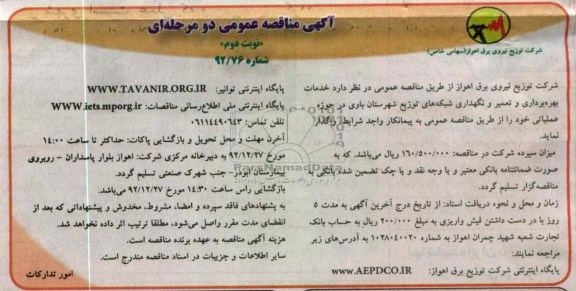 آگهی مناقصه عمومی دو مرحله‌ای
«نوبت دوم»
شماره ۹۲/۷۶
شرکت توزیع نیروی برق اهواز(سهامی خاص)
شرکت توزیع نیروی برق اهواز از طریق مناقصه عمومی در نظر دارد خدمات
بهره‌برداری و تعمیر و نگهداری شبکه‌های توزیع شهرستان باوی در حوزه
عملیاتی خود را از طریق مناقصه عمومی به پیمانکار واجد شرایط واگذار
نماید.
میزان سپرده شرکت در مناقصه: ۱۶۰/۵۰۰/۰۰۰ ریال می‌باشد. که به
صورت ضمانتنامه بانکی معتبر و یا وجه نقد و یا چک تضمین شده بانکی به
مناقصه‌گزار تسلیم گردد.
زمان و محل و نحوه دریافت اسناد: از تاریخ درج آخرین آگهی به مدت ۵
روز با در دست داشتن فیش واریزی به مبلغ ۲۰۰/۰۰۰ ریال به حساب بانک
تجارت شعبه شهید چمران اهواز به شماره ۱۰۲۸۰۴۰۰۲۰ به آدرس‌های زیر
مراجعه نمایند:
پایگاه اینترنتی شرکت توزیع برق اهواز: WWW.AEPDCO.IR
پایگاه اینترنتی توانیر: WWW.TAVANIR.ORG.IR
پایگاه اینترنتی ملی اطلاع‌رسانی مناقصات: WWW.iets.mporg.ir
تلفن تماس: ۰۶۱۱۴۴۹۰۶۴۳
آخرن مهلت و محل تحویل و بازگشایی پاکات: حداکثر تا ساعت ۱۴:۰۰
مورخ ۹۲/۱۲/۲۷ به دبیرخانه مرکزی شرکت: اهواز بلوار پاسداران – روبروی
بیمارستان ابوذر – جنب شهرک صنعتی تسلیم گردد.
بازگشایی راس ساعت ۱۴:۳۰ مورخ ۹۲/۱۲/۲۷ می‌باشد.
به پیشنهادهای فاقد سپرده و امضا، مشروط، مخدوش و پیشنهاداتی که بعد از
انقضای مدت مقرر واصل می‌شود، مطلقا ترتیب اثر داده نخواهد شد.
هزینه آگهی مناقصه به عهده برنده مناقصه است.
سایر اطلاعات و جزییات در اسناد مناقصه مندرج است.
امور تدارکات